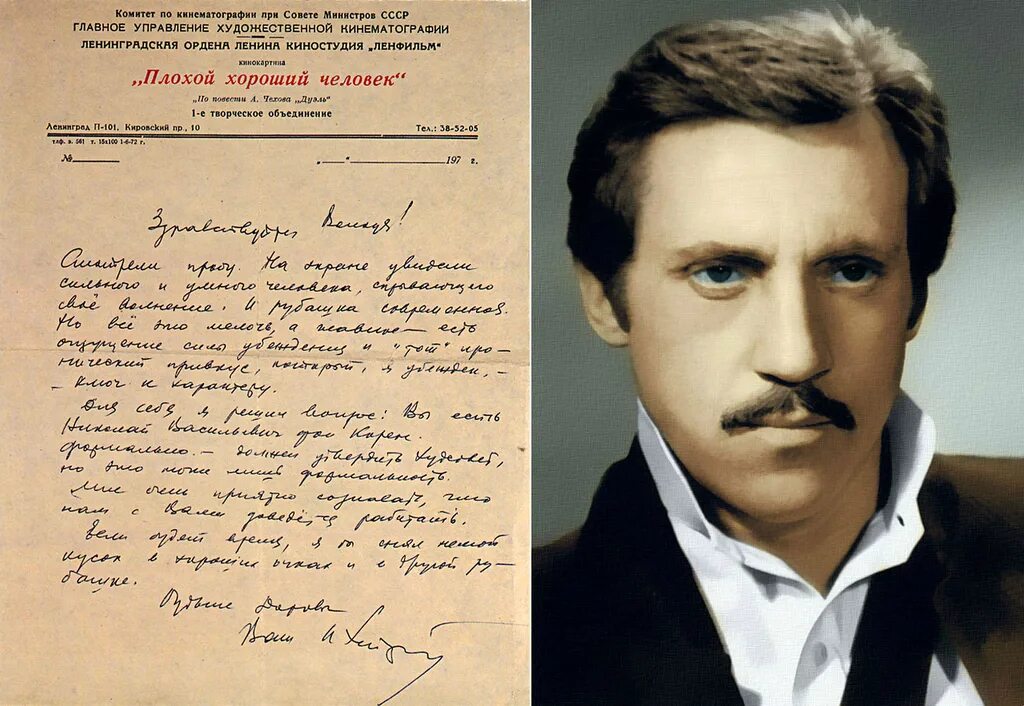 Комитет по кинематографии при Совете Министров СССР
ГЛАВНОЕ УПРАВЛЕНИЕ ХУДОЖЕСТВЕННОЙ КИНЕМАТОГРАФИИ
ЛЕНИНГРАДСКАЯ ОРДЕНА ЛЕНИНА КИНОСТУДИЯ „ЛЕНФИЛЬМ“
кинокартина
„Плохой хороший человек“
„По повести А. Чехова „Дуэль“
1-е творческое объединение
Ленинград П-101, Кировский пр., 10 Тел.: 38-52-05
тлф. з. 561 т. 15х100 1-6-72 г.
№ „ “ 197 г.
Здравствуйте, Володя!
Смотрели пробу. На экране увидели
сильного и умного человека, скрывающего
своё волнение. И рубашка современная.
Но всё это мелочь, а главное — есть
ощущение силы убеждения и "тот" иро-
нический привкус, который, я убежден, —
— ключ к характеру.
Для себя я решил вопрос: Вы есть
Николай Васильевич фон Корен.
Формально — должен утвердить худсовет,
но это тоже лишь формальность.
Мне очень приятно сознавать, что
нам с Вами доведётся работать.
Если будет время, я бы снял немой
кусок в хороших очках и в другой ру-
башке.
Будьте здоровы
Ваш И Хейфиц